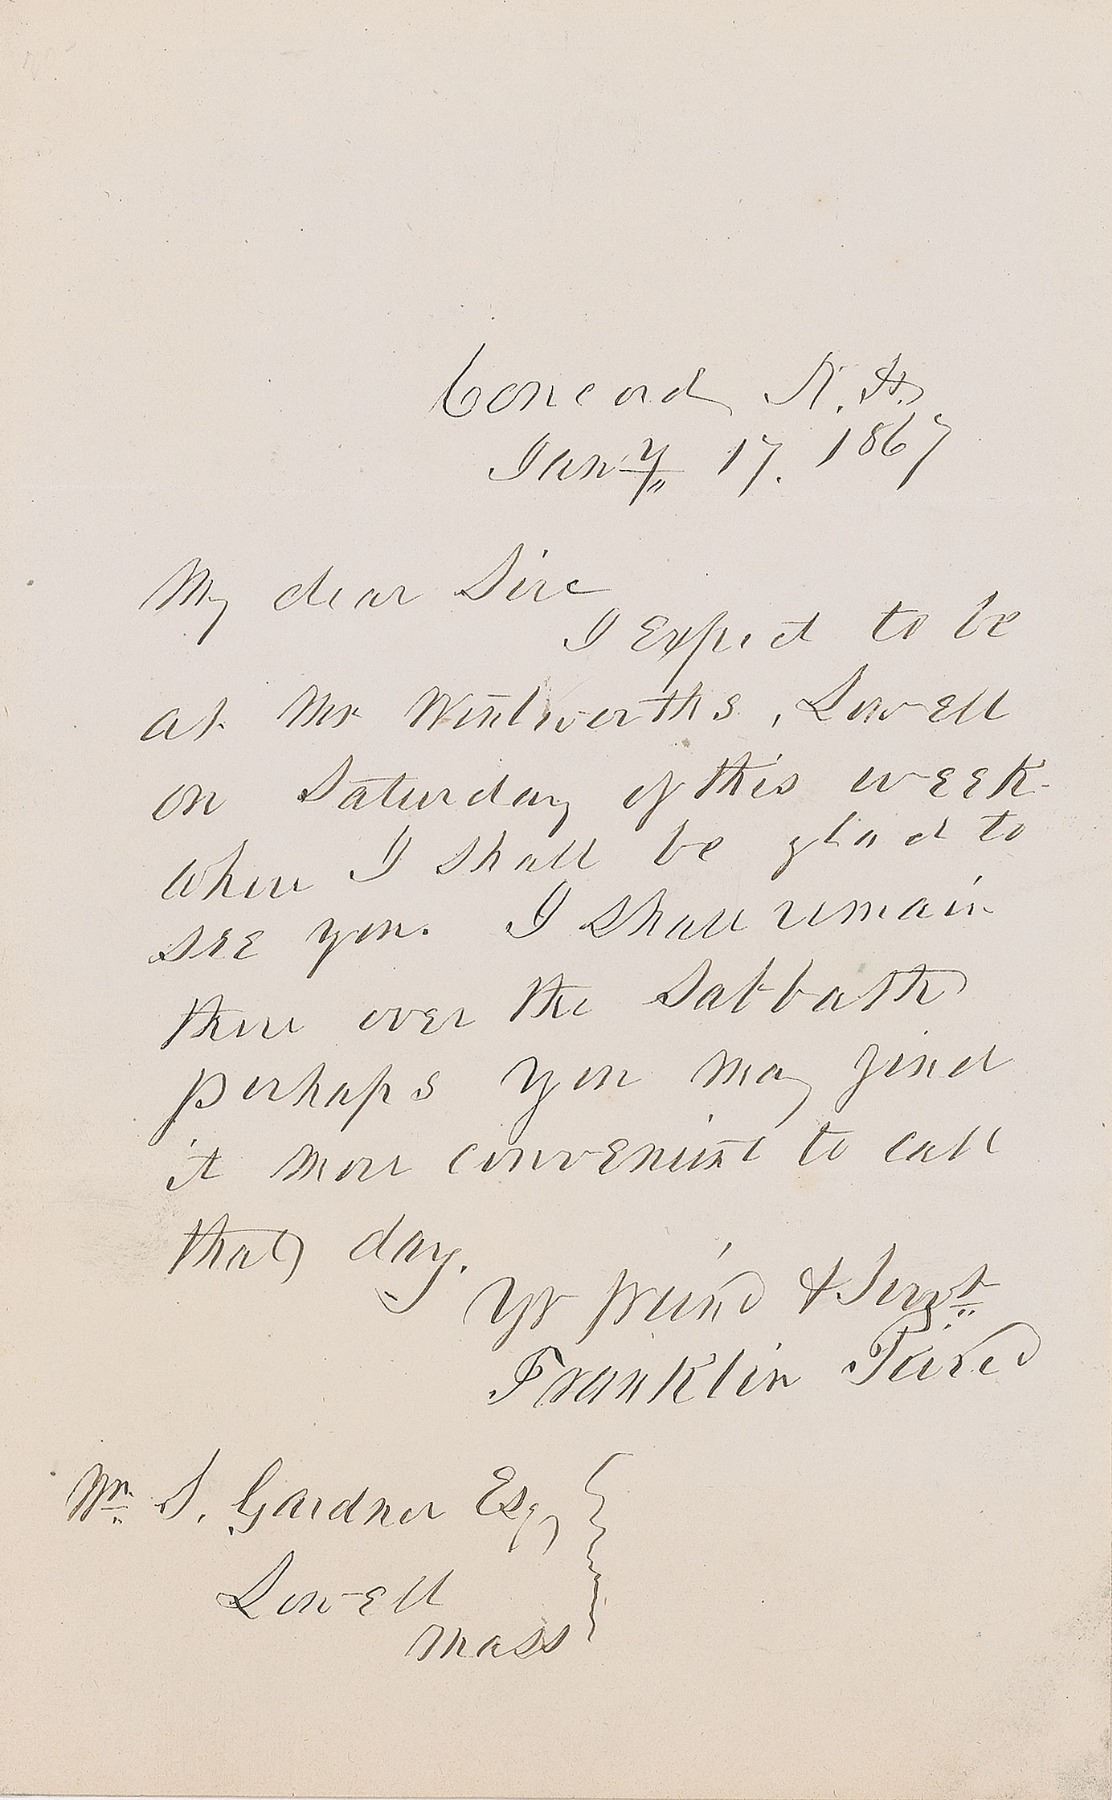 Concord N. H.
Jany 17. 1867
My dear Sir
I expect to be
at Mr Wentworths, Lowell
on Saturday of this week
where I shall be glad to
see you. I shall remain
there over the Sabbath
perhaps you may find
it more convenient to call
that day.
Yr friend & Servt
Franklin Pierce
Wm S. Gardner Esq
Lowell
Mass